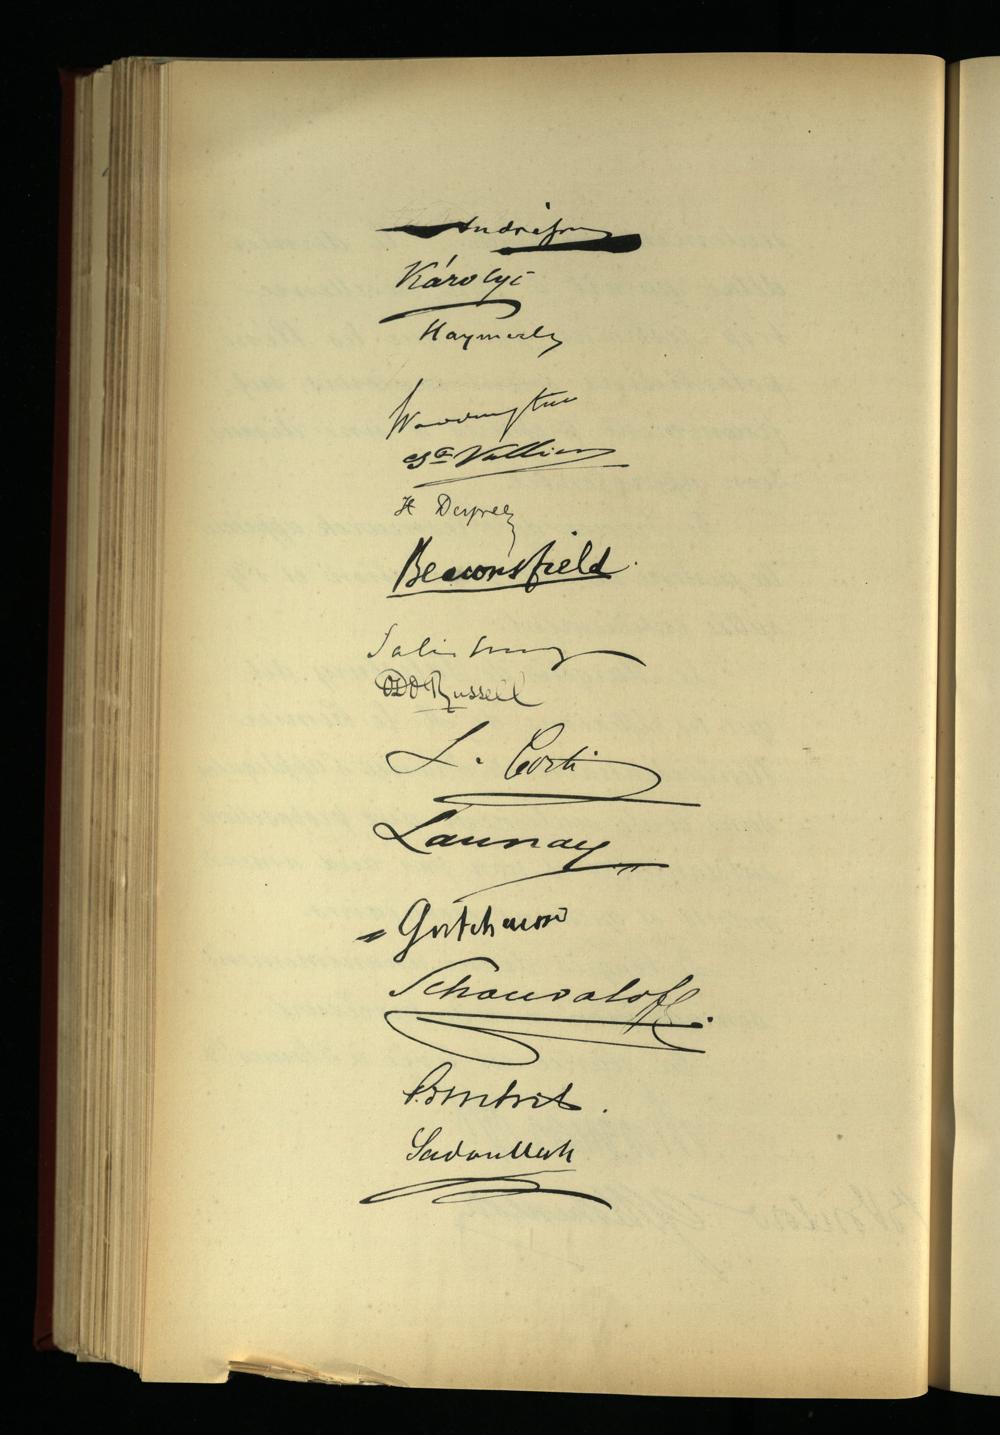 Andrássy
Károlyi
Haymerle
Waddington
St Vallier
H Desprez
Beaconsfield.
Salisbury
Odo Russell
L. Corti
Launay
Gortchacow
Schouvaloff.
P. d'Oubril.
Sadoullah